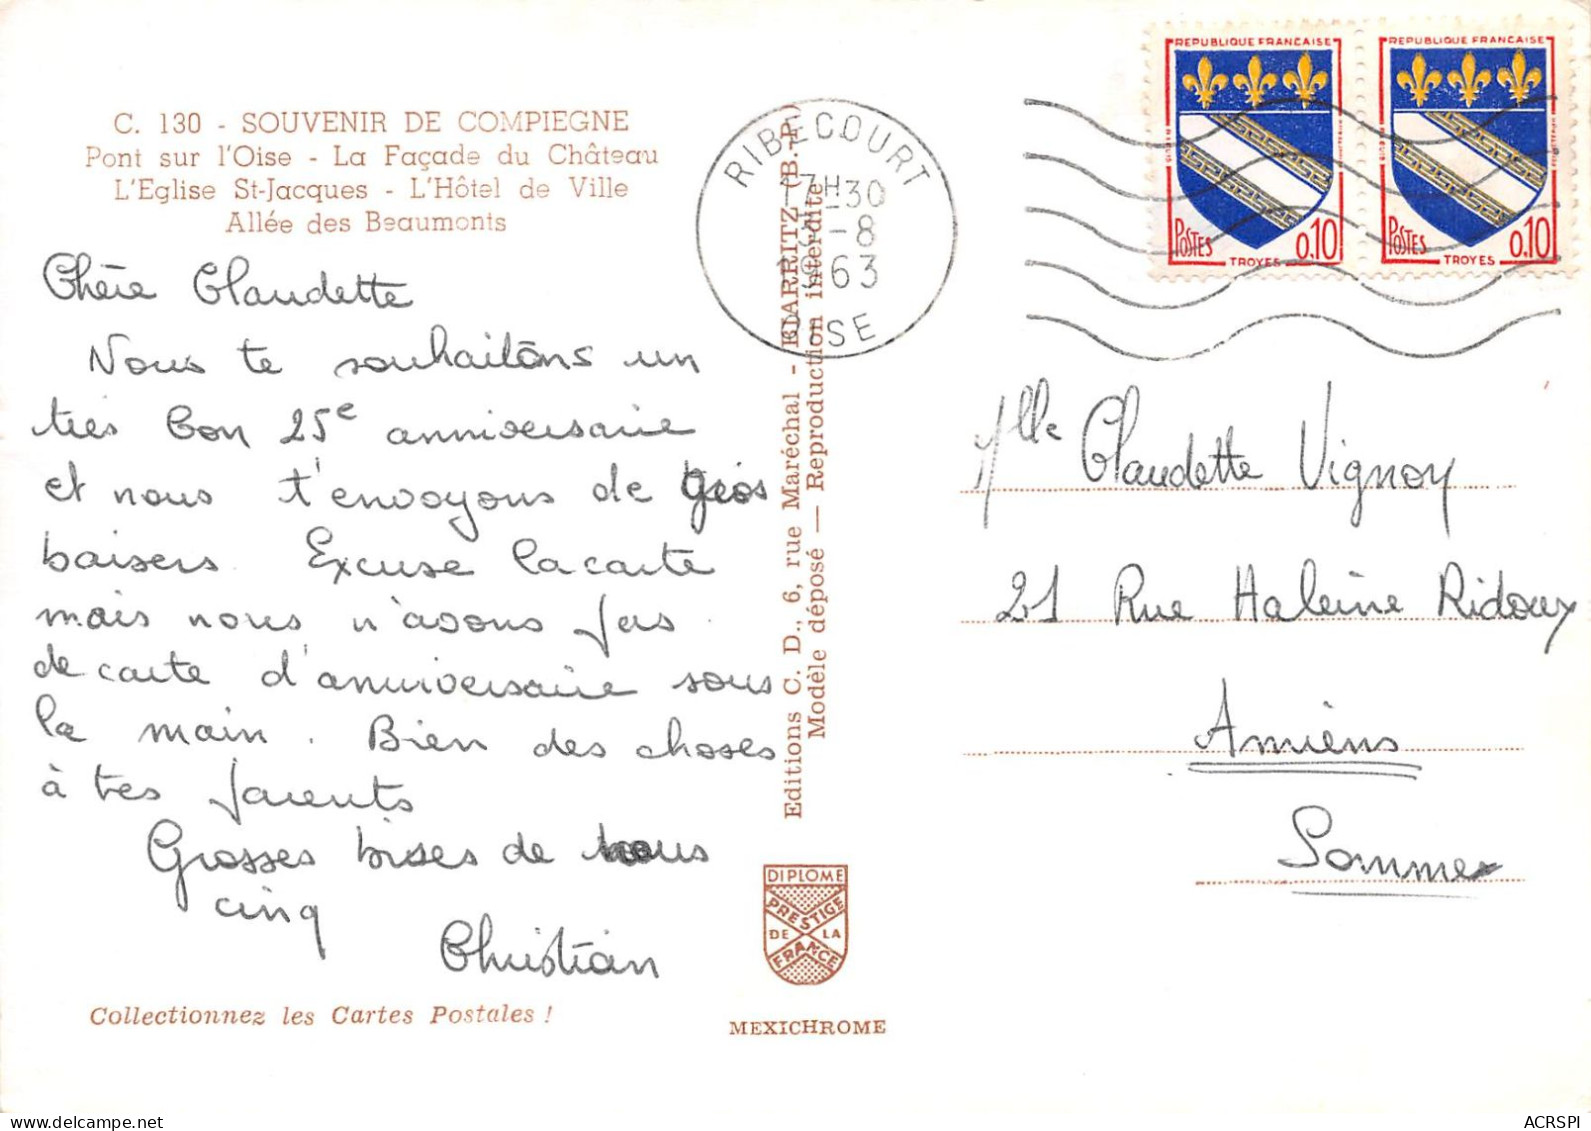 C. 130 - SOUVENIR DE COMPIEGNE
Pont sur l'Oise - La Façade du Château
L'Eglise St-Jacques - L'Hôtel de Ville
Allée des Beaumonts
Chère Claudette
Nous te souhaitons un
très bon 25e anniversaire
et nous t'envoyons de gros
baisers. Excuse la carte
mais nous n'avons pas
de carte d'anniversaire sous
la main. Bien des choses
à tes parents
Grosses bises de nous
cinq
Christian
Collectionnez les Cartes Postales !
Editions C. D., 6, rue Maréchal - BIARRITZ (B.-P.)
Modèle déposé — Reproduction interdite
DIPLOME
PRESTIGE
DE LA
FRANCE
MEXICHROME
RIBECOURT
17H30
-8
1963
OISE
REPUBLIQUE FRANCAISE
POSTES
0,10
TROYES
REPUBLIQUE FRANCAISE
POSTES
0,10
TROYES
Mlle Claudette Vignoy
21 Rue Haleine Ridoux
Amiens
Somme
ACRSPI